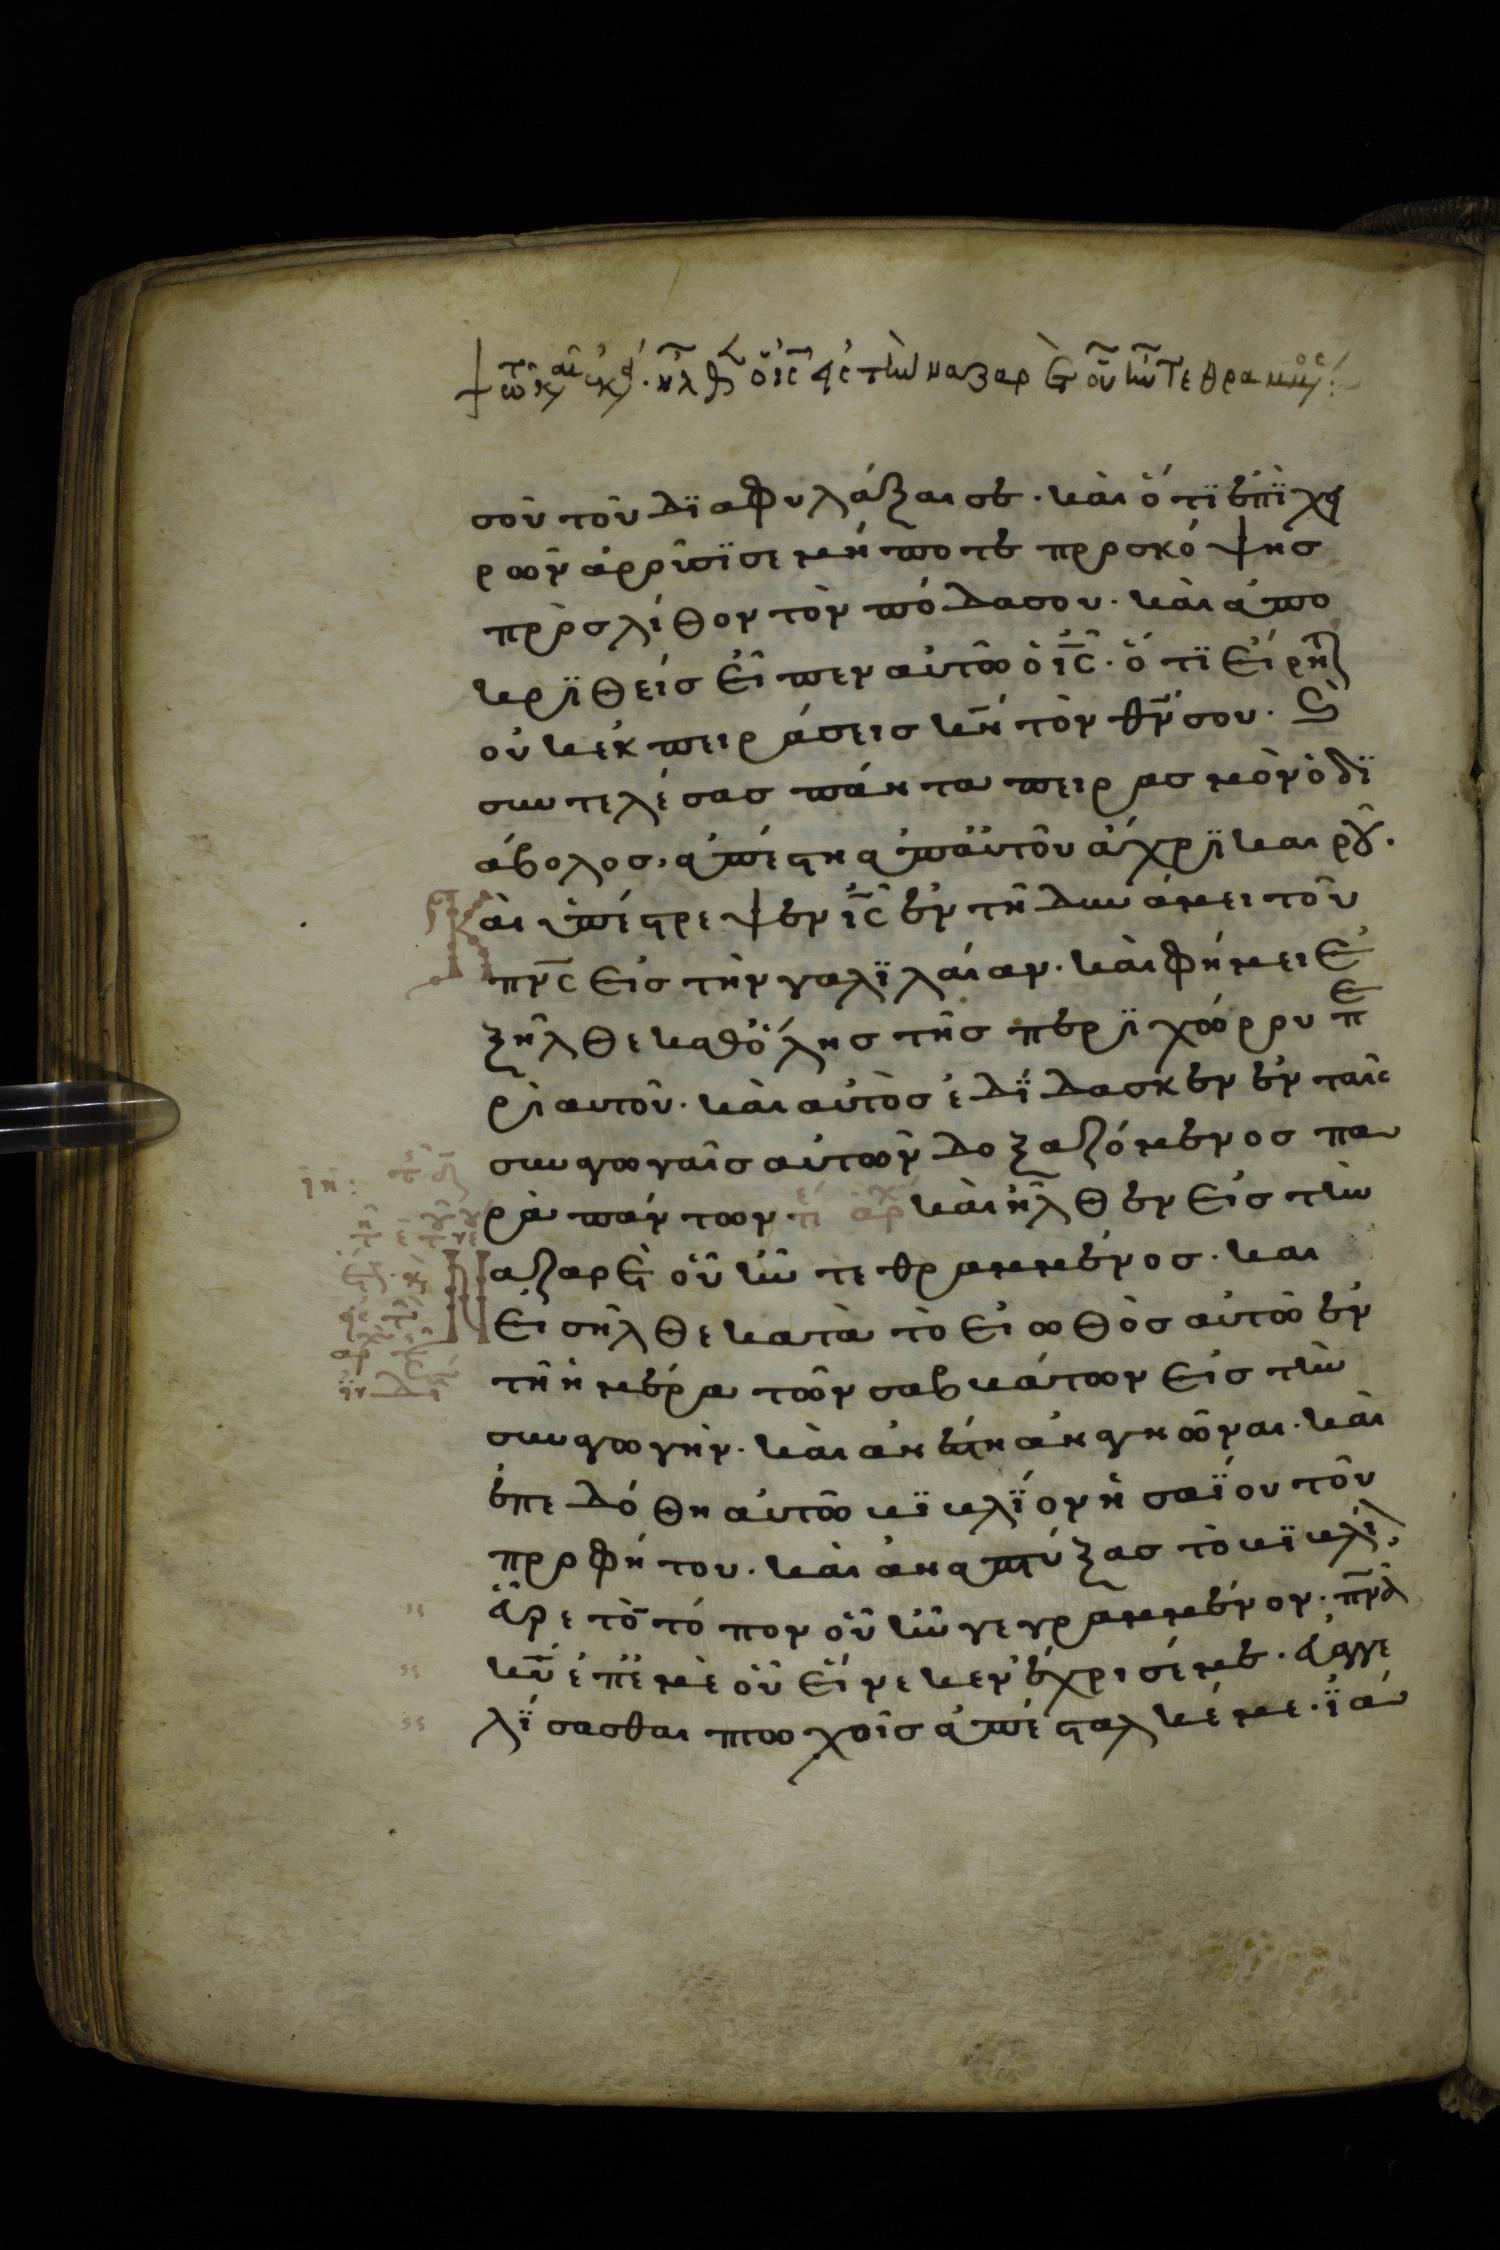 τῶ κ αι κ · ἦλθ ὁ ις εἰς τὴν ναζαρὲτ οὗ ἦν Τεθραμμνος:
σοῦ τοῦ δϊαφυλάξαι σε · καὶ ὅτϊ ἐπῒ χει
ρῶν ἀροῦσϊ σε μήποτε προσκόψης
πρὸς λίθον τὸν πόδα σου · καὶ ἀπο
κρϊθεὶς εἶπεν αὐτῶ ὁ ις · ὅτϊ εἴρητ
οὐκ ἐκπειράσεις κν τὸν θν σου · Καὶ
συντελέσας πάντα πειρασμὸν ὁ δϊ
άβολος, ἀπέστη ἀπ' αὐτοῦ ἄχρϊ καιροῦ ·
Και ὑπέστρεψεν ις ἐν τῆ δυνάμει τοῦ
πνς εἰς τὴν γαλϊλαίαν · καὶ φήμει ἐ
ξῆλθε καθόλης τῆς περϊχώρου πε
ρὶ αυτοῦ · καὶ αὐτὸς ἐδΐδασκεν ἐν ταῖς
συναγωγαῖς αὐτῶν δοξαζόμενος πα
ρὰ πάντων αρχ καὶ ἦλθεν εἰς τὴν
Ναζαρὲτ οὗ ἦν τεθραμμένος · και
εἰσῆλθε κατὰ τὸ εἰωθὸς αὐτῶ ἐν
τῆ ἡμέρα τῶν σαββάτων εἰς τὴν
συναγωγὴν · καὶ ἀνέστη ἀναγνῶναι · καὶ
ἐπεδόθη αὐτῶ βϊβλΐον ἡσαΐου τοῦ
προφήτου · καὶ ἀναπτύξας τὸ βϊβλί,
εὗρε τὸ τόπον οὗ ἦν γεγραμμένον · πνα
κυ ἐπ' ἐμὲ οὗ εἵνεκεν ἔχρισέ με · εὐαγγε
λΐσασθαι πτωχοῖς ἀπέσταλκέ με · ϊά